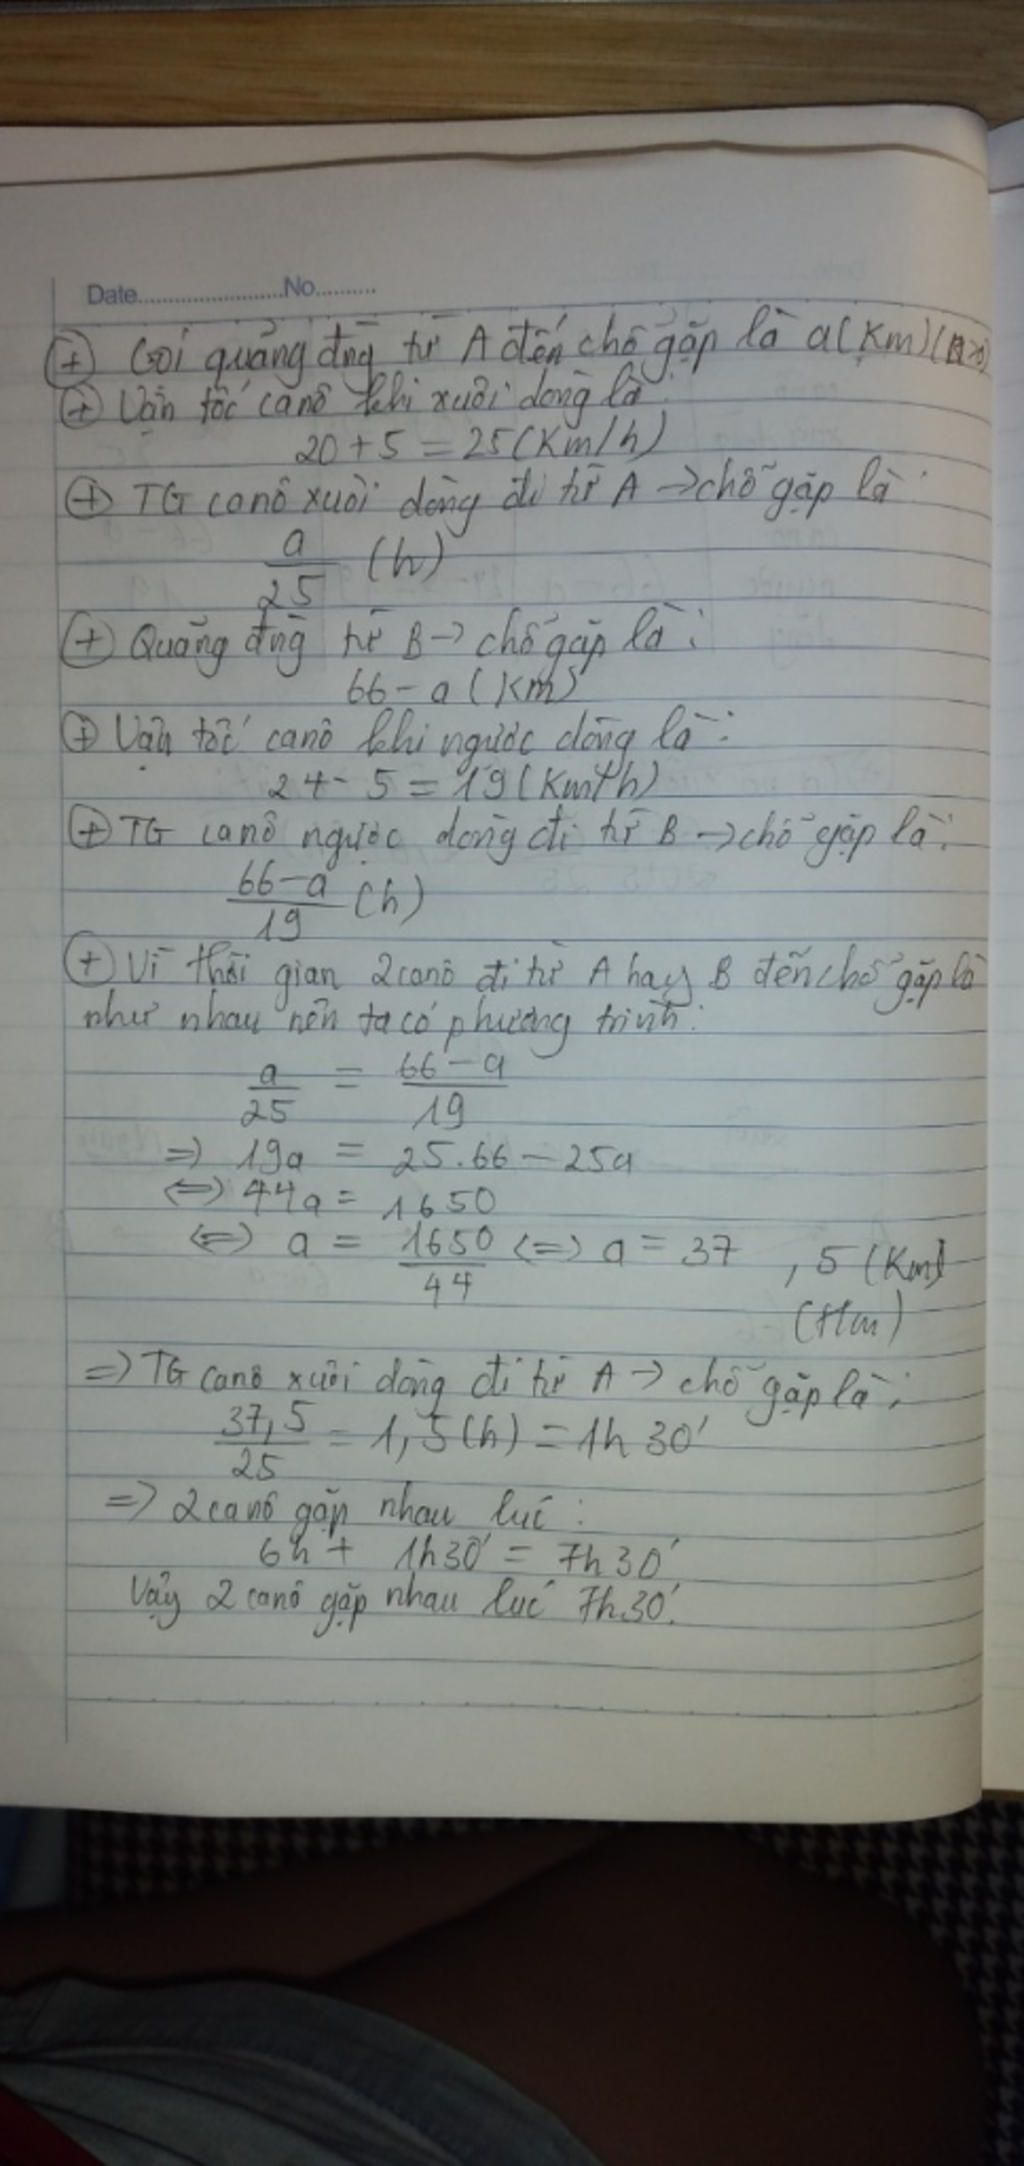 Date........................No..........
⊕ Gọi quảng đng từ A đến chỗ gặp là a(Km)(a>0)
⊕ Vận tốc canô khi xuôi dòng là:
20 + 5 = 25 (Km/h)
⊕ TG canô xuôi dòng đi từ A → chỗ gặp là:
a/25 (h)
⊕ Quãng đng từ B → chỗ gặp là:
66 - a (Km)
⊕ Vận tốc canô khi ngược dòng là:
24 - 5 = 19 (Km/h)
⊕ TG canô ngược dòng đi từ B → chỗ gặp là:
66-a/19 (h)
⊕ Vì thời gian 2 canô đi từ A hay B đến chỗ gặp là
như nhau nên ta có phương trình:
a/25 = 66-a/19
=> 19a = 25.66 - 25a
<=> 44a = 1650
<=> a = 1650/44 <=> a = 37,5 (Km)
(tm)
=> TG canô xuôi dòng đi từ A → chỗ gặp là:
37,5/25 = 1,5(h) = 1h 30'
=> 2 canô gặp nhau lúc:
6h + 1h30' = 7h 30'
Vậy 2 canô gặp nhau lúc 7h30'.